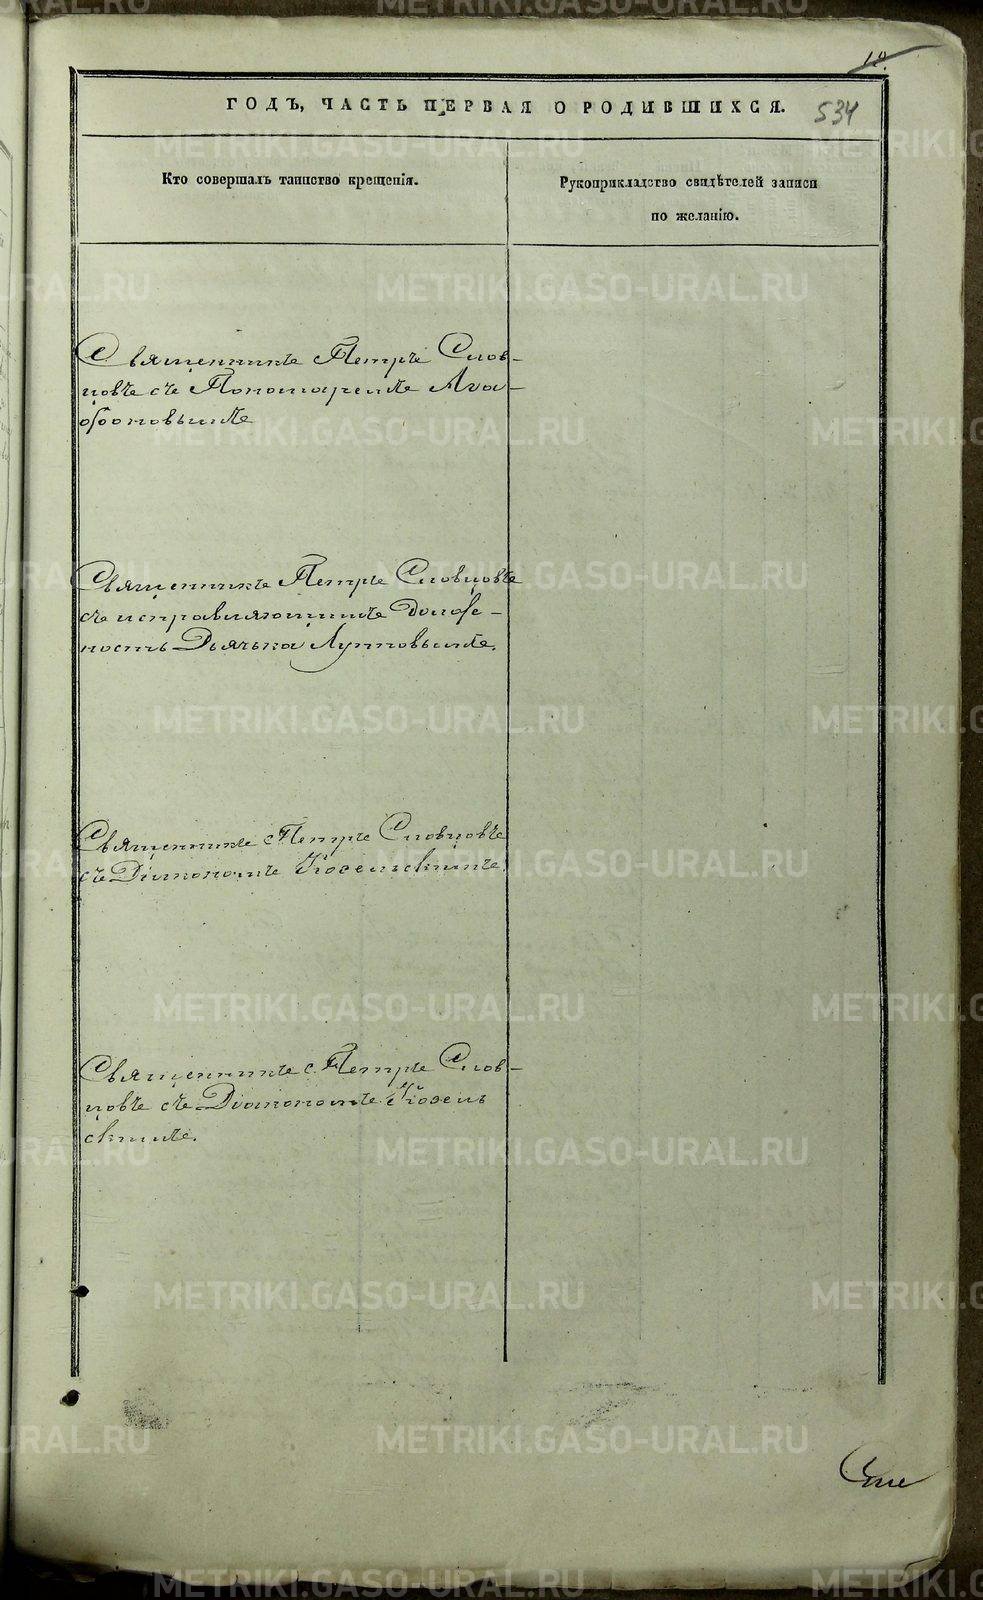 10.
ГОДЪ, ЧАСТЬ ПЕРВАЯ О РОДИВШИХСЯ.
534
Кто совершалъ таинство крещенія.
Рукоприкладство свидѣтелей записи
по желанію.
Священникъ Петръ Слов-
цовъ съ Пономаремъ Ага-
фоновымъ
Священникъ Петръ Словцовъ
съ исправляющимъ долж-
ность Дьячька Луповымъ.
Священникъ Петръ Словцовъ
съ Діакономъ Козельскимъ.
Священникъ Петръ Слов-
цовъ съ Діакономъ Козель
скимъ.
METRIKI.GASO-URAL.RU